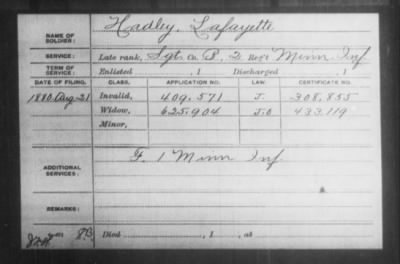 NAME OF SOLDIER: Hadley, Lafayette
SERVICE: Late rank, Sgt. Co. B, 2 Reg't Minn. Inf
TERM OF SERVICE: Enlisted , 1 Discharged , 1
DATE OF FILING. CLASS. APPLICATION NO. LAW. CERTIFICATE NO.
1880. Aug. 21 Invalid, 409.571 J. 308.855
Widow, 625.904 J.O 433.119
Minor,
ADDITIONAL SERVICES: F. 1 Minn Inf.
REMARKS:
Died , 1 , at